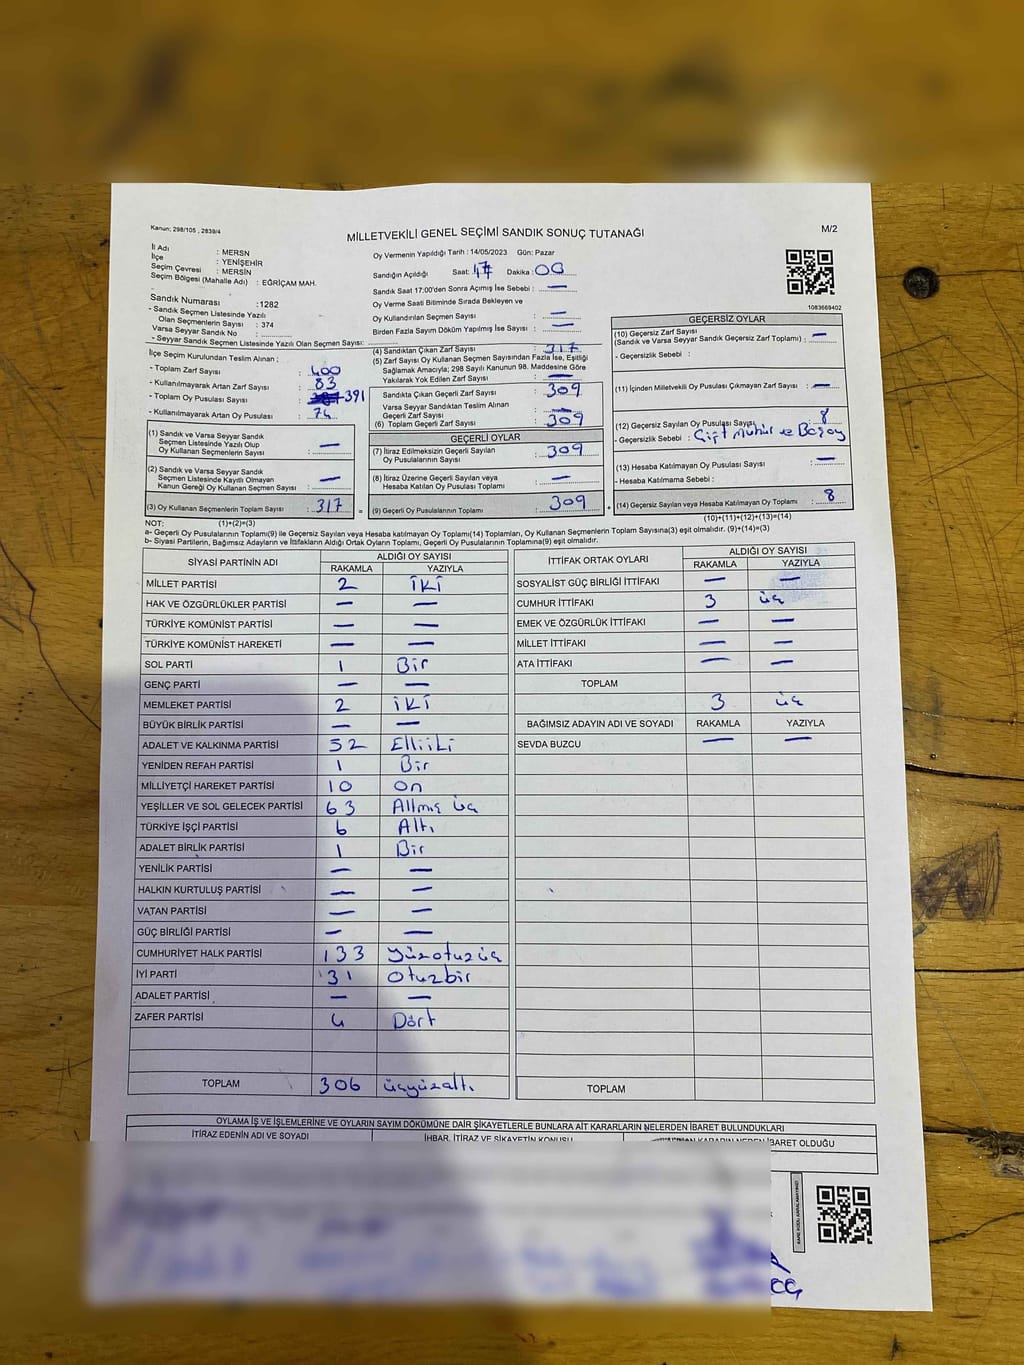 Kanun; 298/105 , 2839/4
MİLLETVEKİLİ GENEL SEÇİMİ SANDIK SONUÇ TUTANAĞI
M/2
İl Adı : MERSN
İlçe : YENİŞEHİR
Seçim Çevresi : MERSİN
Seçim Bölgesi (Mahalle Adı) : EĞRİÇAM MAH.
Sandık Numarası :1282
- Sandık Seçmen Listesinde Yazılı
Olan Seçmenlerin Sayısı : 374
Varsa Seyyar Sandık No :
- Seyyar Sandık Seçmen Listesinde Yazılı Olan Seçmen Sayısı:
İlçe Seçim Kurulundan Teslim Alınan ;
- Toplam Zarf Sayısı : 400
- Kullanılmayarak Artan Zarf Sayısı : 83
- Toplam Oy Pusulası Sayısı : 391
- Kullanılmayarak Artan Oy Pusulası : 74
(1) Sandık ve Varsa Seyyar Sandık
Seçmen Listesinde Yazılı Olup
Oy Kullanan Seçmenlerin Sayısı : —
(2) Sandık ve Varsa Seyyar Sandık
Seçmen Listesinde Kayıtlı Olmayan
Kanun Gereği Oy Kullanan Seçmen Sayısı : —
(3) Oy Kullanan Seçmenlerin Toplam Sayısı : 317
Oy Vermenin Yapıldığı Tarih : 14/05/2023 Gün: Pazar
Sandığın Açıldığı Saat: 17 Dakika : 00
Sandık Saat 17:00'den Sonra Açılmış İse Sebebi : —
Oy Verme Saati Bitiminde Sırada Bekleyen ve
Oy Kullandırılan Seçmen Sayısı : —
Birden Fazla Sayım Döküm Yapılmış İse Sayısı : —
(4) Sandıktan Çıkan Zarf Sayısı : 317
(5) Zarf Sayısı Oy Kullanan Seçmen Sayısından Fazla İse, Eşitliği
Sağlamak Amacıyla; 298 Sayılı Kanunun 98. Maddesine Göre
Yakılarak Yok Edilen Zarf Sayısı : —
Sandıkta Çıkan Geçerli Zarf Sayısı : 309
Varsa Seyyar Sandıktan Teslim Alınan
Geçerli Zarf Sayısı : —
(6) Toplam Geçerli Zarf Sayısı : 309
GEÇERLİ OYLAR
(7) İtiraz Edilmeksizin Geçerli Sayılan
Oy Pusulalarının Sayısı : 309
(8) İtiraz Üzerine Geçerli Sayılan veya
Hesaba Katılan Oy Pusulası Toplamı : —
(9) Geçerli Oy Pusulalarının Toplamı : 309
1083669402
GEÇERSİZ OYLAR
(10) Geçersiz Zarf Sayısı
(Sandık ve Varsa Seyyar Sandık Geçersiz Zarf Toplamı) : —
- Geçersizlik Sebebi :
(11) İçinden Milletvekili Oy Pusulası Çıkmayan Zarf Sayısı : —
(12) Geçersiz Sayılan Oy Pusulası Sayısı 8
- Geçersizlik Sebebi : Çift mühür ve
(13) Hesaba Katılmayan Oy Pusulası Sayısı : —
- Hesaba Katılmama Sebebi :
(14) Geçersiz Sayılan veya Hesaba Katılmayan Oy Toplamı : 8
NOT: (1)+(2)=(3)
(10)+(11)+(12)+(13)=(14)
a- Geçerli Oy Pusulalarının Toplamı(9) ile Geçersiz Sayılan veya Hesaba Katılmayan Oy Toplamı(14) Toplamları, Oy Kullanan Seçmenlerin Toplam Sayısına(3) eşit olmalıdır. (9)+(14)=(3)
b- Siyasi Partilerin, Bağımsız Adayların ve İttifakların Aldığı Ortak Oyların Toplamı, Geçerli Oy Pusulalarının Toplamına(9) eşit olmalıdır.
SİYASİ PARTİNİN ADI ALDIĞI OY SAYISI
RAKAMLA YAZIYLA
MİLLET PARTİSİ 2 iki
HAK VE ÖZGÜRLÜKLER PARTİSİ — —
TÜRKİYE KOMÜNİST PARTİSİ — —
TÜRKİYE KOMÜNİST HAREKETİ — —
SOL PARTİ 1 Bir
GENÇ PARTİ — —
MEMLEKET PARTİSİ 2 iki
BÜYÜK BİRLİK PARTİSİ — —
ADALET VE KALKINMA PARTİSİ 52 Elliiki
YENİDEN REFAH PARTİSİ 1 Bir
MİLLİYETÇİ HAREKET PARTİSİ 10 on
YEŞİLLER VE SOL GELECEK PARTİSİ 63 Altmış üç
TÜRKİYE İŞÇİ PARTİSİ 6 Altı
ADALET BİRLİK PARTİSİ 1 Bir
YENİLİK PARTİSİ — —
HALKIN KURTULUŞ PARTİSİ — —
VATAN PARTİSİ — —
GÜÇ BİRLİĞİ PARTİSİ — —
CUMHURİYET HALK PARTİSİ 133 yüzotuzüç
İYİ PARTİ 31 otuzbir
ADALET PARTİSİ — —
ZAFER PARTİSİ 4 Dört
TOPLAM 306 üçyüzaltı
İTTİFAK ORTAK OYLARI ALDIĞI OY SAYISI
RAKAMLA YAZIYLA
SOSYALİST GÜÇ BİRLİĞİ İTTİFAKI — —
CUMHUR İTTİFAKI 3 üç
EMEK VE ÖZGÜRLÜK İTTİFAKI — —
MİLLET İTTİFAKI — —
ATA İTTİFAKI — —
TOPLAM
3 üç
BAĞIMSIZ ADAYIN ADI VE SOYADI RAKAMLA YAZIYLA
SEVDA BUZCU — —
TOPLAM
OYLAMA İŞ VE İŞLEMLERİNE VE OYLARIN SAYIM DÖKÜMÜNE DAİR ŞİKAYETLERLE BUNLARA AİT KARARLARIN NELERDEN İBARET BULUNDUKLARI
İTİRAZ EDENİN ADI VE SOYADI İHBAR, İTİRAZ VE ŞİKAYETİN KONUSU KARARIN NEDEN İBARET OLDUĞU